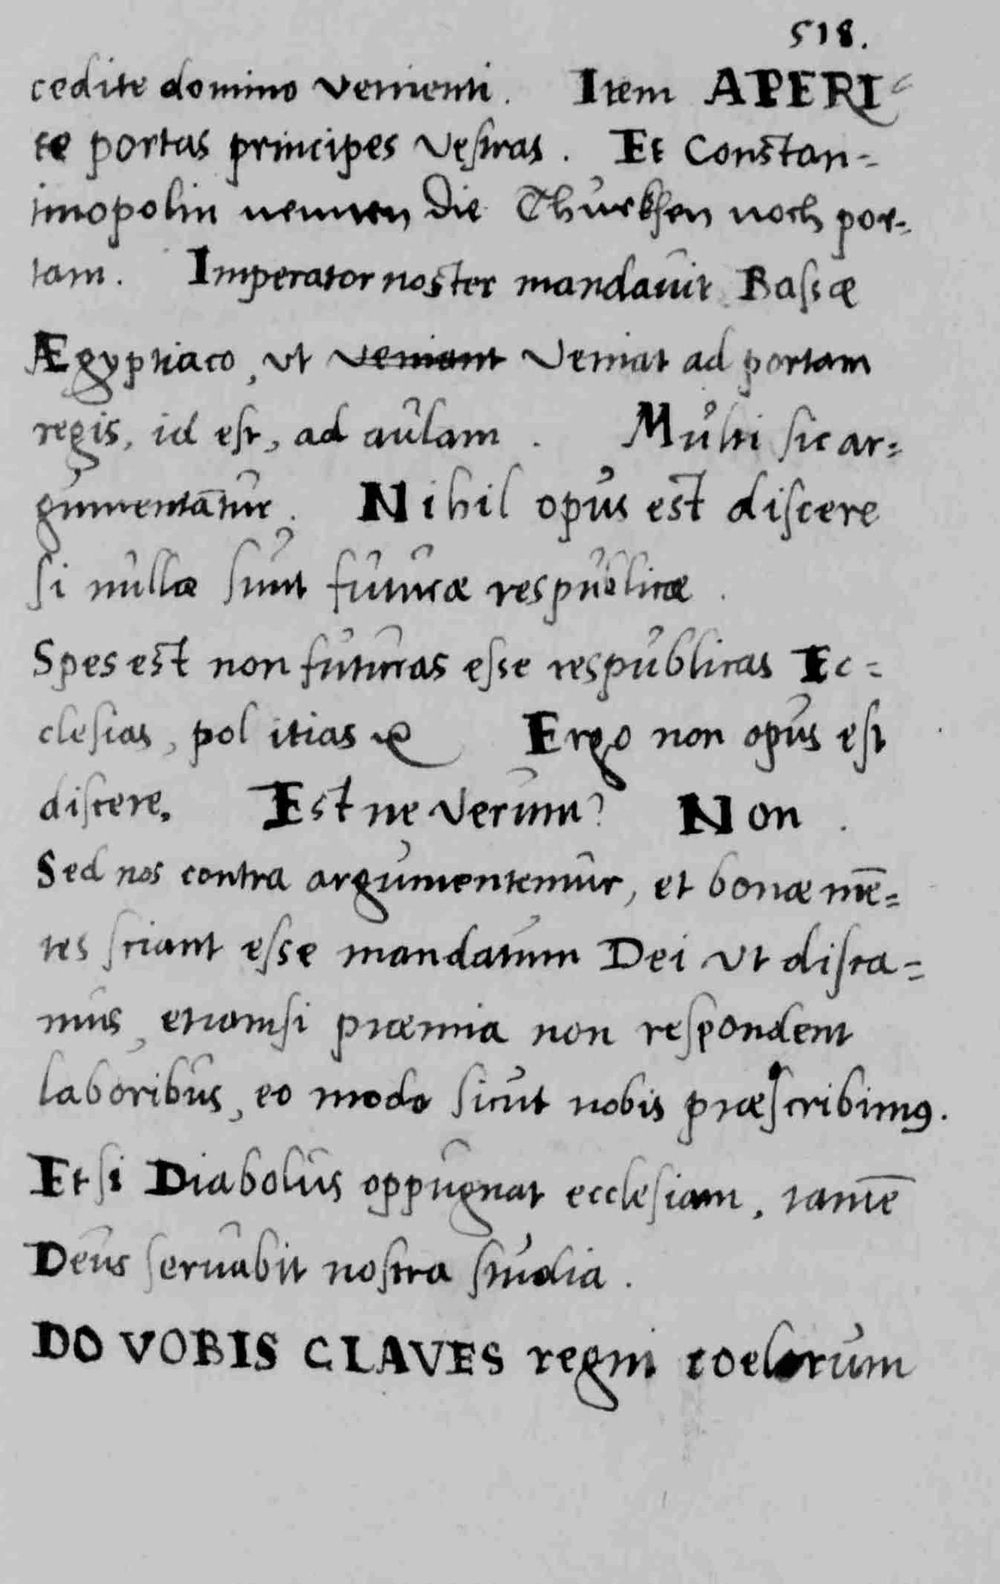 518.
cedite domino venienti. Item APERI-
te portas principes vestras. Et Constan=
tinopolin nennen die Thurkhen noch por=
tam. Imperator noster mandavit Bassæ
Ægyptiaco, ut veniant veniat ad portam
regis, id est, ad aulam. Multi sic ar=
gumentātur. Nihil opus est discere
si nullæ sunt futuræ respublicæ.
Spes est non futuras esse respublicas Ec=
clesias, politias &c Ergo non opus est
discere. Est ne verum? Non.
Sed nos contra argumentemur, et bonæ mē=
tes sciant esse mandatum Dei ut disca=
mus, etiamsi præmia non respondent
laboribus, eo modo sicut nobis præscribimꝰ.
Etsi Diabolus oppugnat ecclesiam, tamē
Deus servabit nostra studia.
DO VOBIS CLAVES regni coelorum